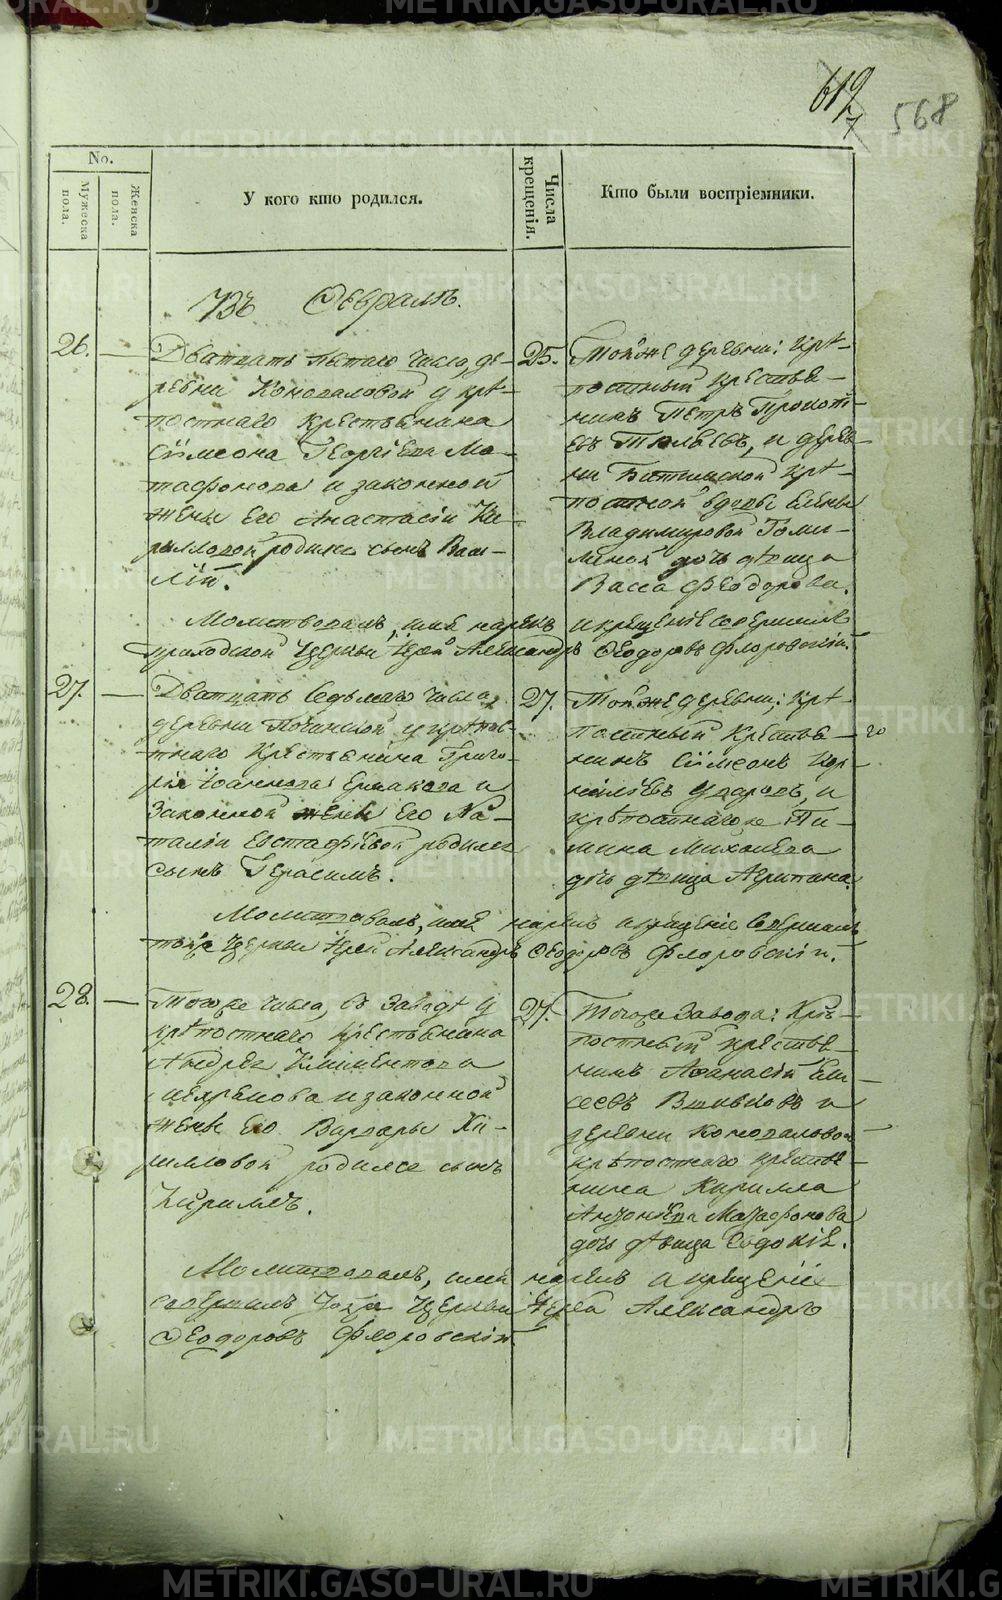 619
7
568
No.
Мужеска пола.
Женска пола.
У кого кто родился.
Числа крещенія.
Кто были воспріемники.
Изъ Февраля.
26.
Дватцать пятаго числа, де-
ревни Коноваловой у крѣ-
постнаго крестьянина
Сѵмеона Георгіева Ма-
тафонова и законной
жены его Анастасіи Ки-
рилловой родился сынъ Васи-
лій.
25.
Тойже деревни: крѣ-
постный крестья-
нинъ Петръ Прокопі-
евъ и дерев-
ни Битимской крѣ-
постной вдовы Елены
Владимировой
дочь дѣвица
Васса Феодорова.
Молитвовалъ, имя нарекъ и крещеніе совершилъ
приходской Церкви Іерей Александръ Феодоровъ Флоровскій.
27.
Дватцать седьмаго числа,
деревни Починской у крѣпос-
тнаго крестьянина Григо-
рія Іоаннова Ермакова и
законной жены его На-
таліи Евстафіевой родился
сынъ Герасимъ.
27.
Тойже деревни; крѣ-
постный крестья-
нинъ Сѵмеонъ Кор-
ниліевъ и
крѣпостнагоже Пи-
мина Михаилова
дочь дѣвица Агрипина.
го
Молитвовалъ, имя нарекъ и крещеніе совершилъ
тойже Церкви Іерей Александръ Феодоровъ Флоровскій.
28.
Тогоже числа, въ Заводѣ у
крѣпостнаго крестьянина
Андрея Климентова
и законной
жены его Варвары Ки-
рилловой родился сынъ
Кириллъ.
27.
Тогоже Завода: Крѣ-
постный крестья-
нинъ Афанасій Ели-
сеевъ Вшивковъ и
деревни Коноваловой
крѣпостнаго крестья-
нина Кирилла
Антоніева Матафонова
дочь дѣвица Евдокія.
Молитвовалъ, имя нарекъ и крещеніе
совершилъ тояже Церкви Іерей Александръ
Феодоровъ Флоровскій.
METRIKI.GASO-URAL.RU